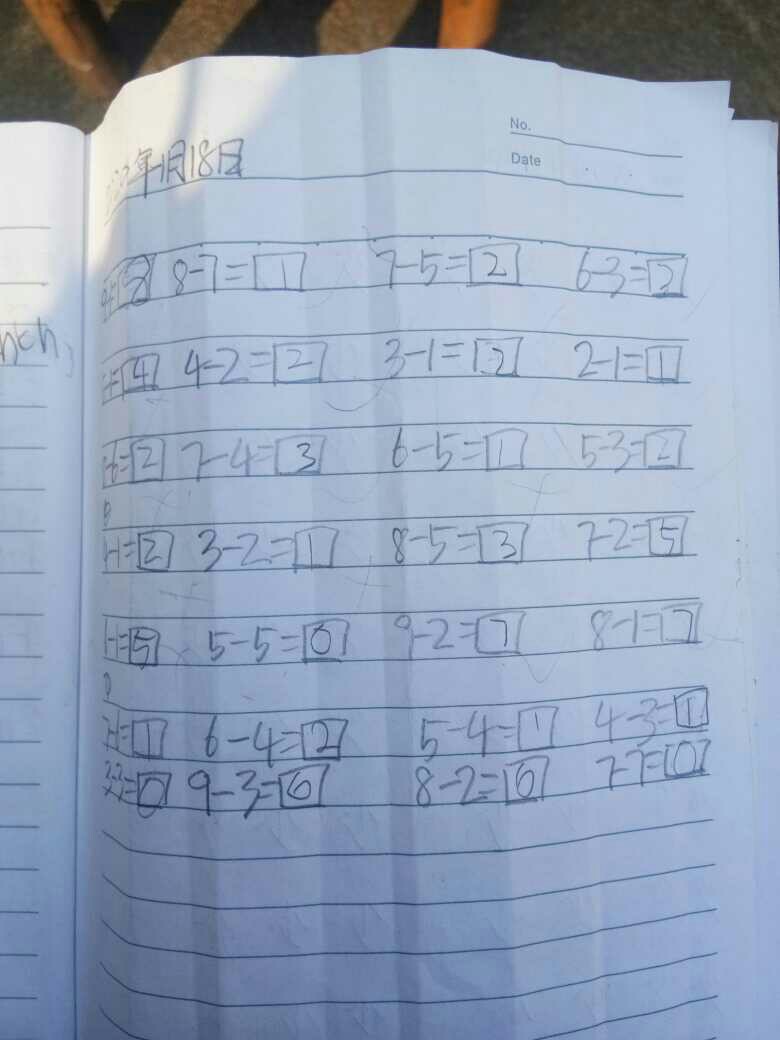 No.
Date
年1月18日
8-7=1 7-5=2 6-3=3
4 4-2=2 3-1=2 2-1=1
-6=2 7-4=3 6-5=1 5-3=2
-1=2 3-2=1 8-5=3 7-2=5
=5 5-5=0 9-2=7 8-1=7
=1 6-4=2 5-4=1 4-3=1
3-3=0 9-3=6 8-2=6 7-7=0